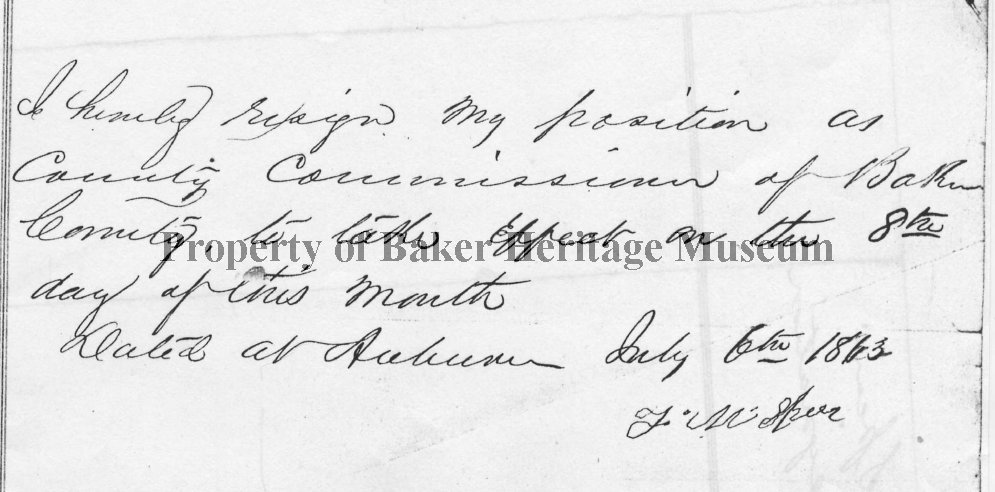 I hereby resign my position as
County Commissioner of Baker
County to take effect on the 8th
Property of Baker Heritage Museum
day of this Month
Dated at Auburn July 6th 1863